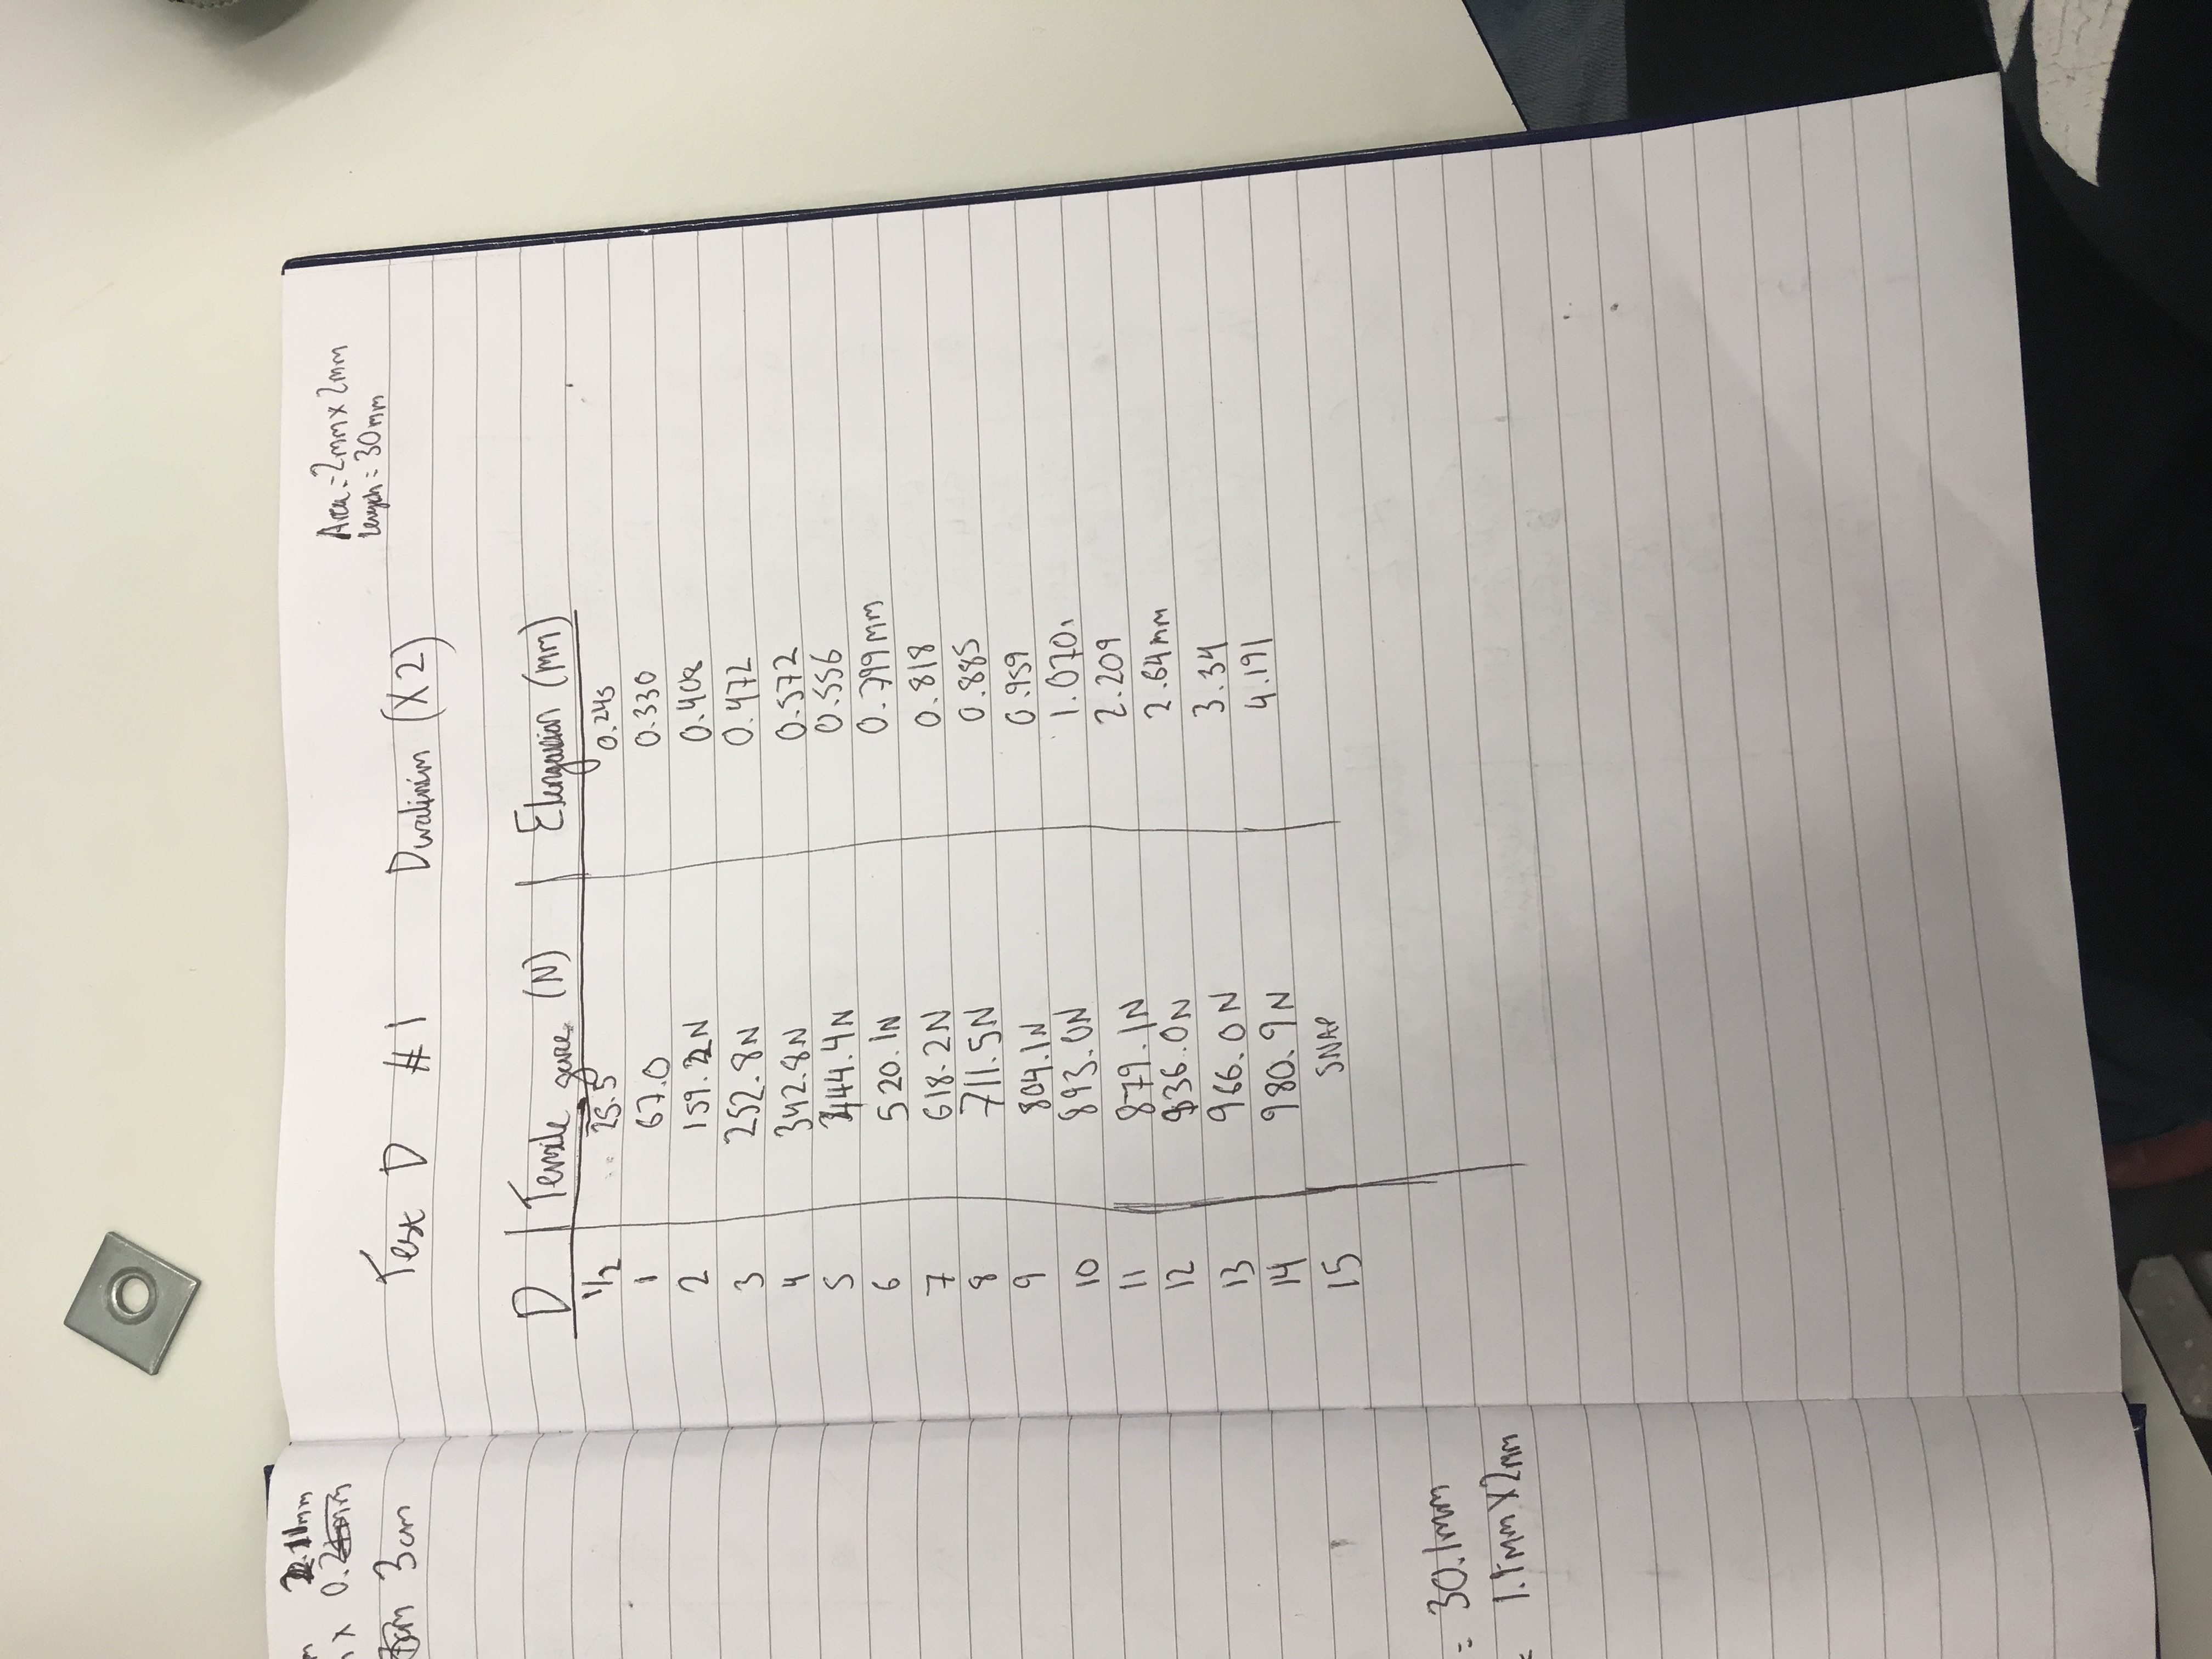 2.11mm
x 0.2
3cm
= 30.1mm
1.1mm X 2mm
Area = 2mm x 2mm
Length = 30mm
Test D #1 Duralinim (X2)
D Tensile force (N) Elongation (mm)
1/2 25.5 0.245
1 67.0 0.330
2 159.2N 0.408
3 252.8N 0.472
4 342.8N 0.572
5 444.4N 0.556
6 520.1N 0.799mm
7 618.2N 0.818
8 711.5N 0.885
9 804.1N 0.959
10 893.0N 1.070
11 879.1N 2.209
12 936.0N 2.64mm
13 966.0N 3.34
14 980.9N 4.191
15 SNAP